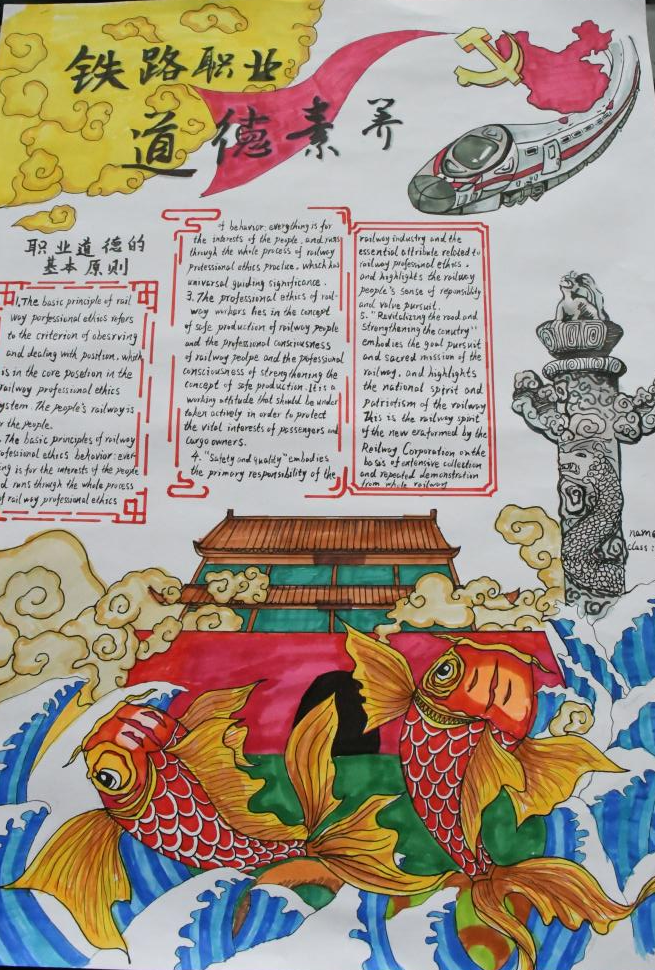 铁路职业
道德素养
职业道德的
基本原则
1, The basic principle of rail
way porfessional ethics refers
to the criterion of obesrving
and dealing with position, which
is in the core posetion in the
railway professional ethics
system. The people's railway is
for the people.
The basic principles of railway
professional ethics behavior: ever-
ing is for the interests of the people
d runs through the whole process
of railway professional ethics
behavior: everything is for
the interests of the people, and runs
through the whole process of railway
professional ethics practice, which has
universal guiding significance.
3. The professional ethics of rail-
way workers lies in the concept
of safe production of railway people
and the professional consciousness
of railway peolpe and the professional
consciousness of strengthening the
concept of safe production. It is a
working attitude that should be under
taken actively in order to protect
the vital interests of passengers and
cargo owners.
4. "Safety and quality" embodies
the primary responsibility of the
railway industry and the
essential attribute related to
railway professional ethics,
and highlights the railway
people's sense of reponsibility
and value pursuit.
5. "Revitalizing the road and
strengthening the conutry"
embodies the goal pursuit
and sacred mission of the
railway, and highlights
the national spirit and
patriotism of the railway
This is the railway spirit
of the new eraformed by the
Railway Corporation on the
basis of extensive collection
and repeated demonstration
from whole railway
name
class: